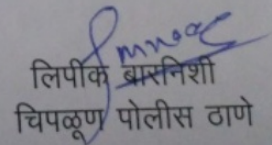 लिपीक बारनिशी
चिपळूण पोलीस ठाणे